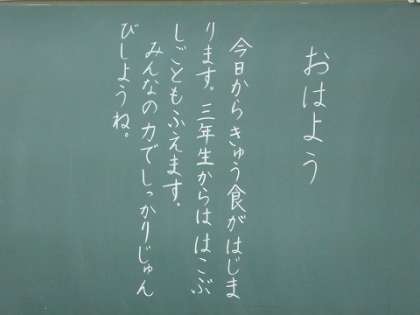 おはよう
今日からきゅう食がはじま
ります。三年生からははこぶ
しごともふえます。
みんなの力でしっかりじゅん
びしようね。